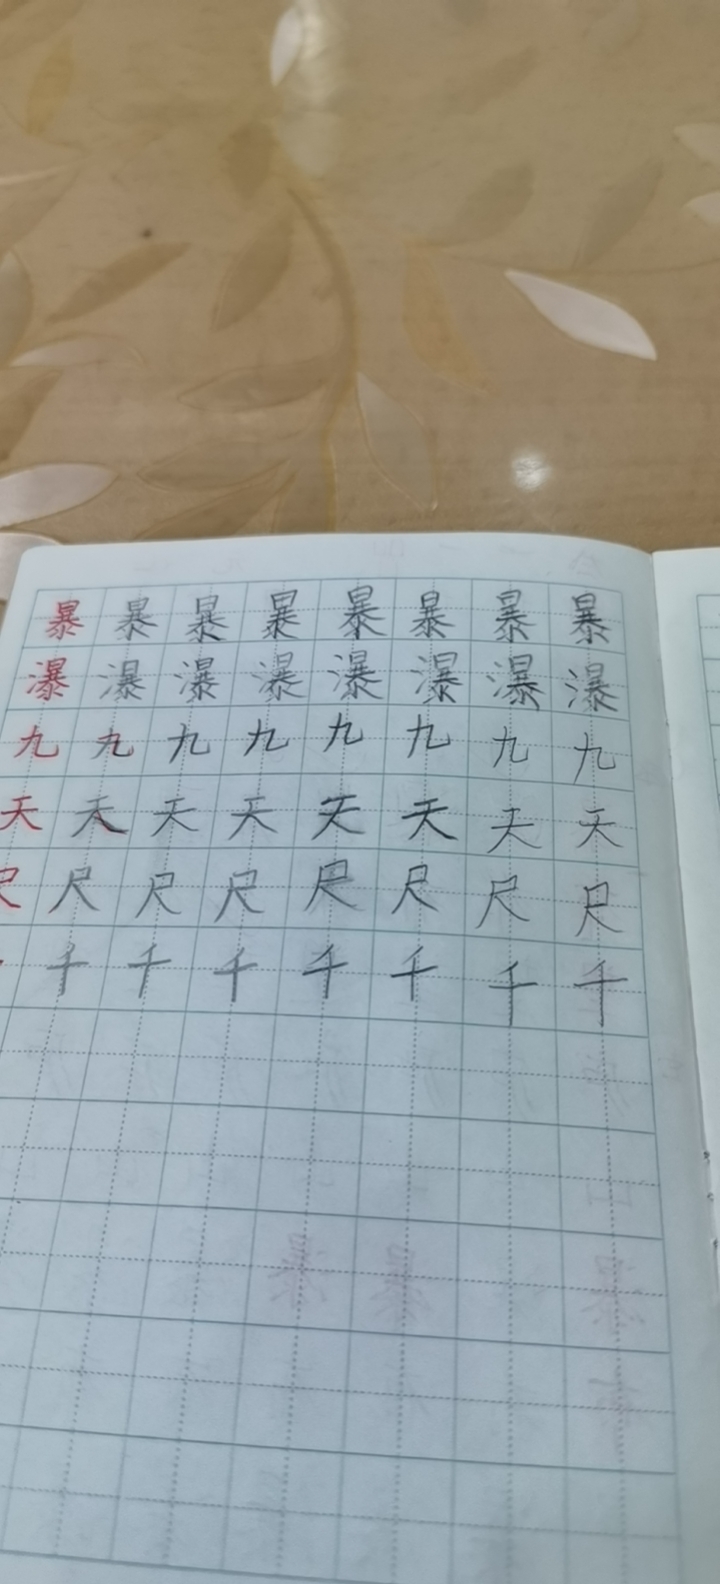 暴暴暴暴暴暴暴暴
瀑瀑瀑瀑瀑瀑瀑瀑
九九九九九九九九
天天天天天天天天
尺尺尺尺尺尺尺尺
千千千千千千千